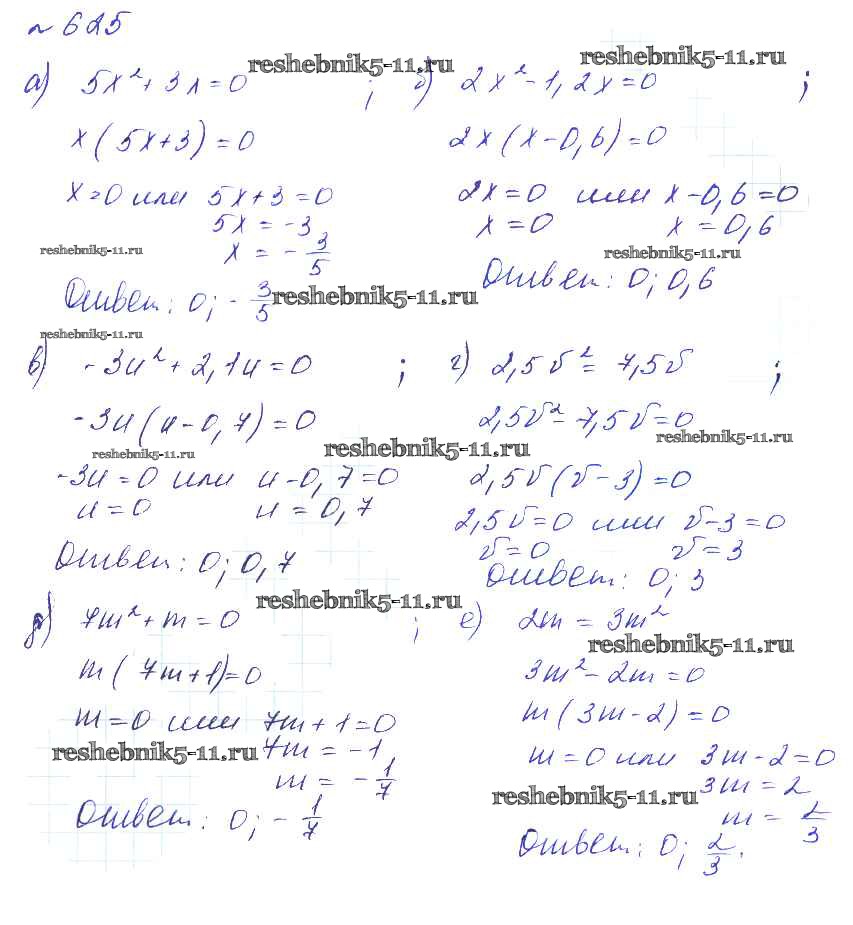 № 625
а) 5x² + 3x = 0 ;
x(5x+3) = 0
x=0 или 5x+3=0
5x = -3
x = -3/5
Ответ: 0; -3/5
б) 2x² - 1,2x = 0 ;
2x(x-0,6)=0
2x=0 или x-0,6=0
x=0 x=0,6
Ответ: 0; 0,6
в) -3u² + 2,1u = 0 ;
-3u(u-0,7)=0
-3u=0 или u-0,7=0
u=0 u=0,7
Ответ: 0; 0,7
г) 2,5v² = 7,5v ;
2,5v² - 7,5v = 0
2,5v(v-3)=0
2,5v=0 или v-3=0
v=0 v=3
Ответ: 0; 3
д) 7m² + m = 0 ;
m(7m+1)=0
m=0 или 7m+1=0
7m = -1
m = -1/7
Ответ: 0; -1/7
е) 2m = 3m²
3m² - 2m = 0
m(3m-2)=0
m=0 или 3m-2=0
3m=2
m = 2/3
Ответ: 0; 2/3.
reshebnik5-11.ru
reshebnik5-11.ru
reshebnik5-11.ru
reshebnik5-11.ru
reshebnik5-11.ru
reshebnik5-11.ru
reshebnik5-11.ru
reshebnik5-11.ru
reshebnik5-11.ru
reshebnik5-11.ru
reshebnik5-11.ru
reshebnik5-11.ru
reshebnik5-11.ru